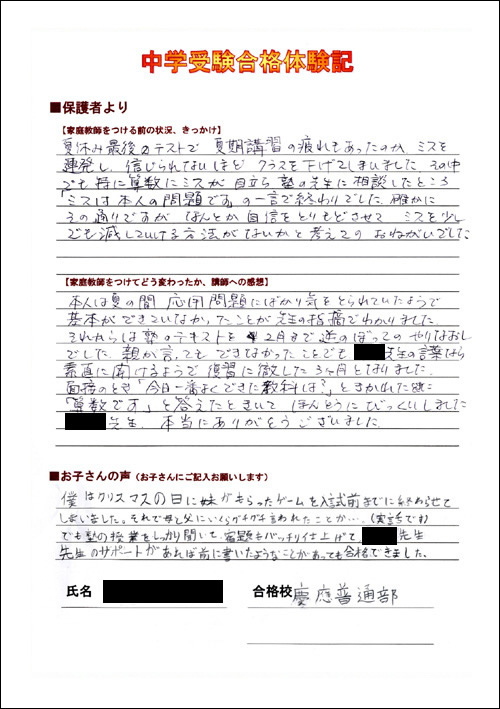 中学受験合格体験記
■保護者より
【家庭教師をつける前の状況、きっかけ】
夏休み最後のテストで 夏期講習の疲れもあったのか ミスを
連発し、信じられないほど クラスを下げてしまいました。その中
でも特に算数にミスが目立ち 塾の先生に相談したところ
「ミスは本人の問題です」の一言で終わりでした。確かに
その通りですが なんとか自信をとりもどさせて ミスを少し
でも減していける方法がないかと考えての おねがいでした。
【家庭教師をつけてどう変わったか、講師への感想】
本人は夏の間 応用問題にばかり気をとられていたようで
基本ができていなかったことが先生の指摘でわかりました。
それからは塾のテキストを 2月まで逆のぼっての やりなおし
でした。親が言ってもできてなかったことでも 先生の言葉なら
素直に聞けるようで復習に徹した3ヶ月となりました。
面接のとき「今日一番よくできた教科は?」ときかれた際に
「算数です」と答えたときいて ほんとうにびっくりしました
先生、本当にありがとうございました。
■お子さんの声(お子さんにご記入お願いします)
僕はクリスマスの日に妹がもらったゲームを入試前までに終わらせて
しまいました。それで母と父にいくらガチガチ言われたことか…。(実話です)
でも塾の授業をしっかり聞いて、宿題もバッチリ仕上げて 先生
先生のサポートがあれば前に書いたようなことがあっても合格できました。
氏名
合格校 慶應普通部